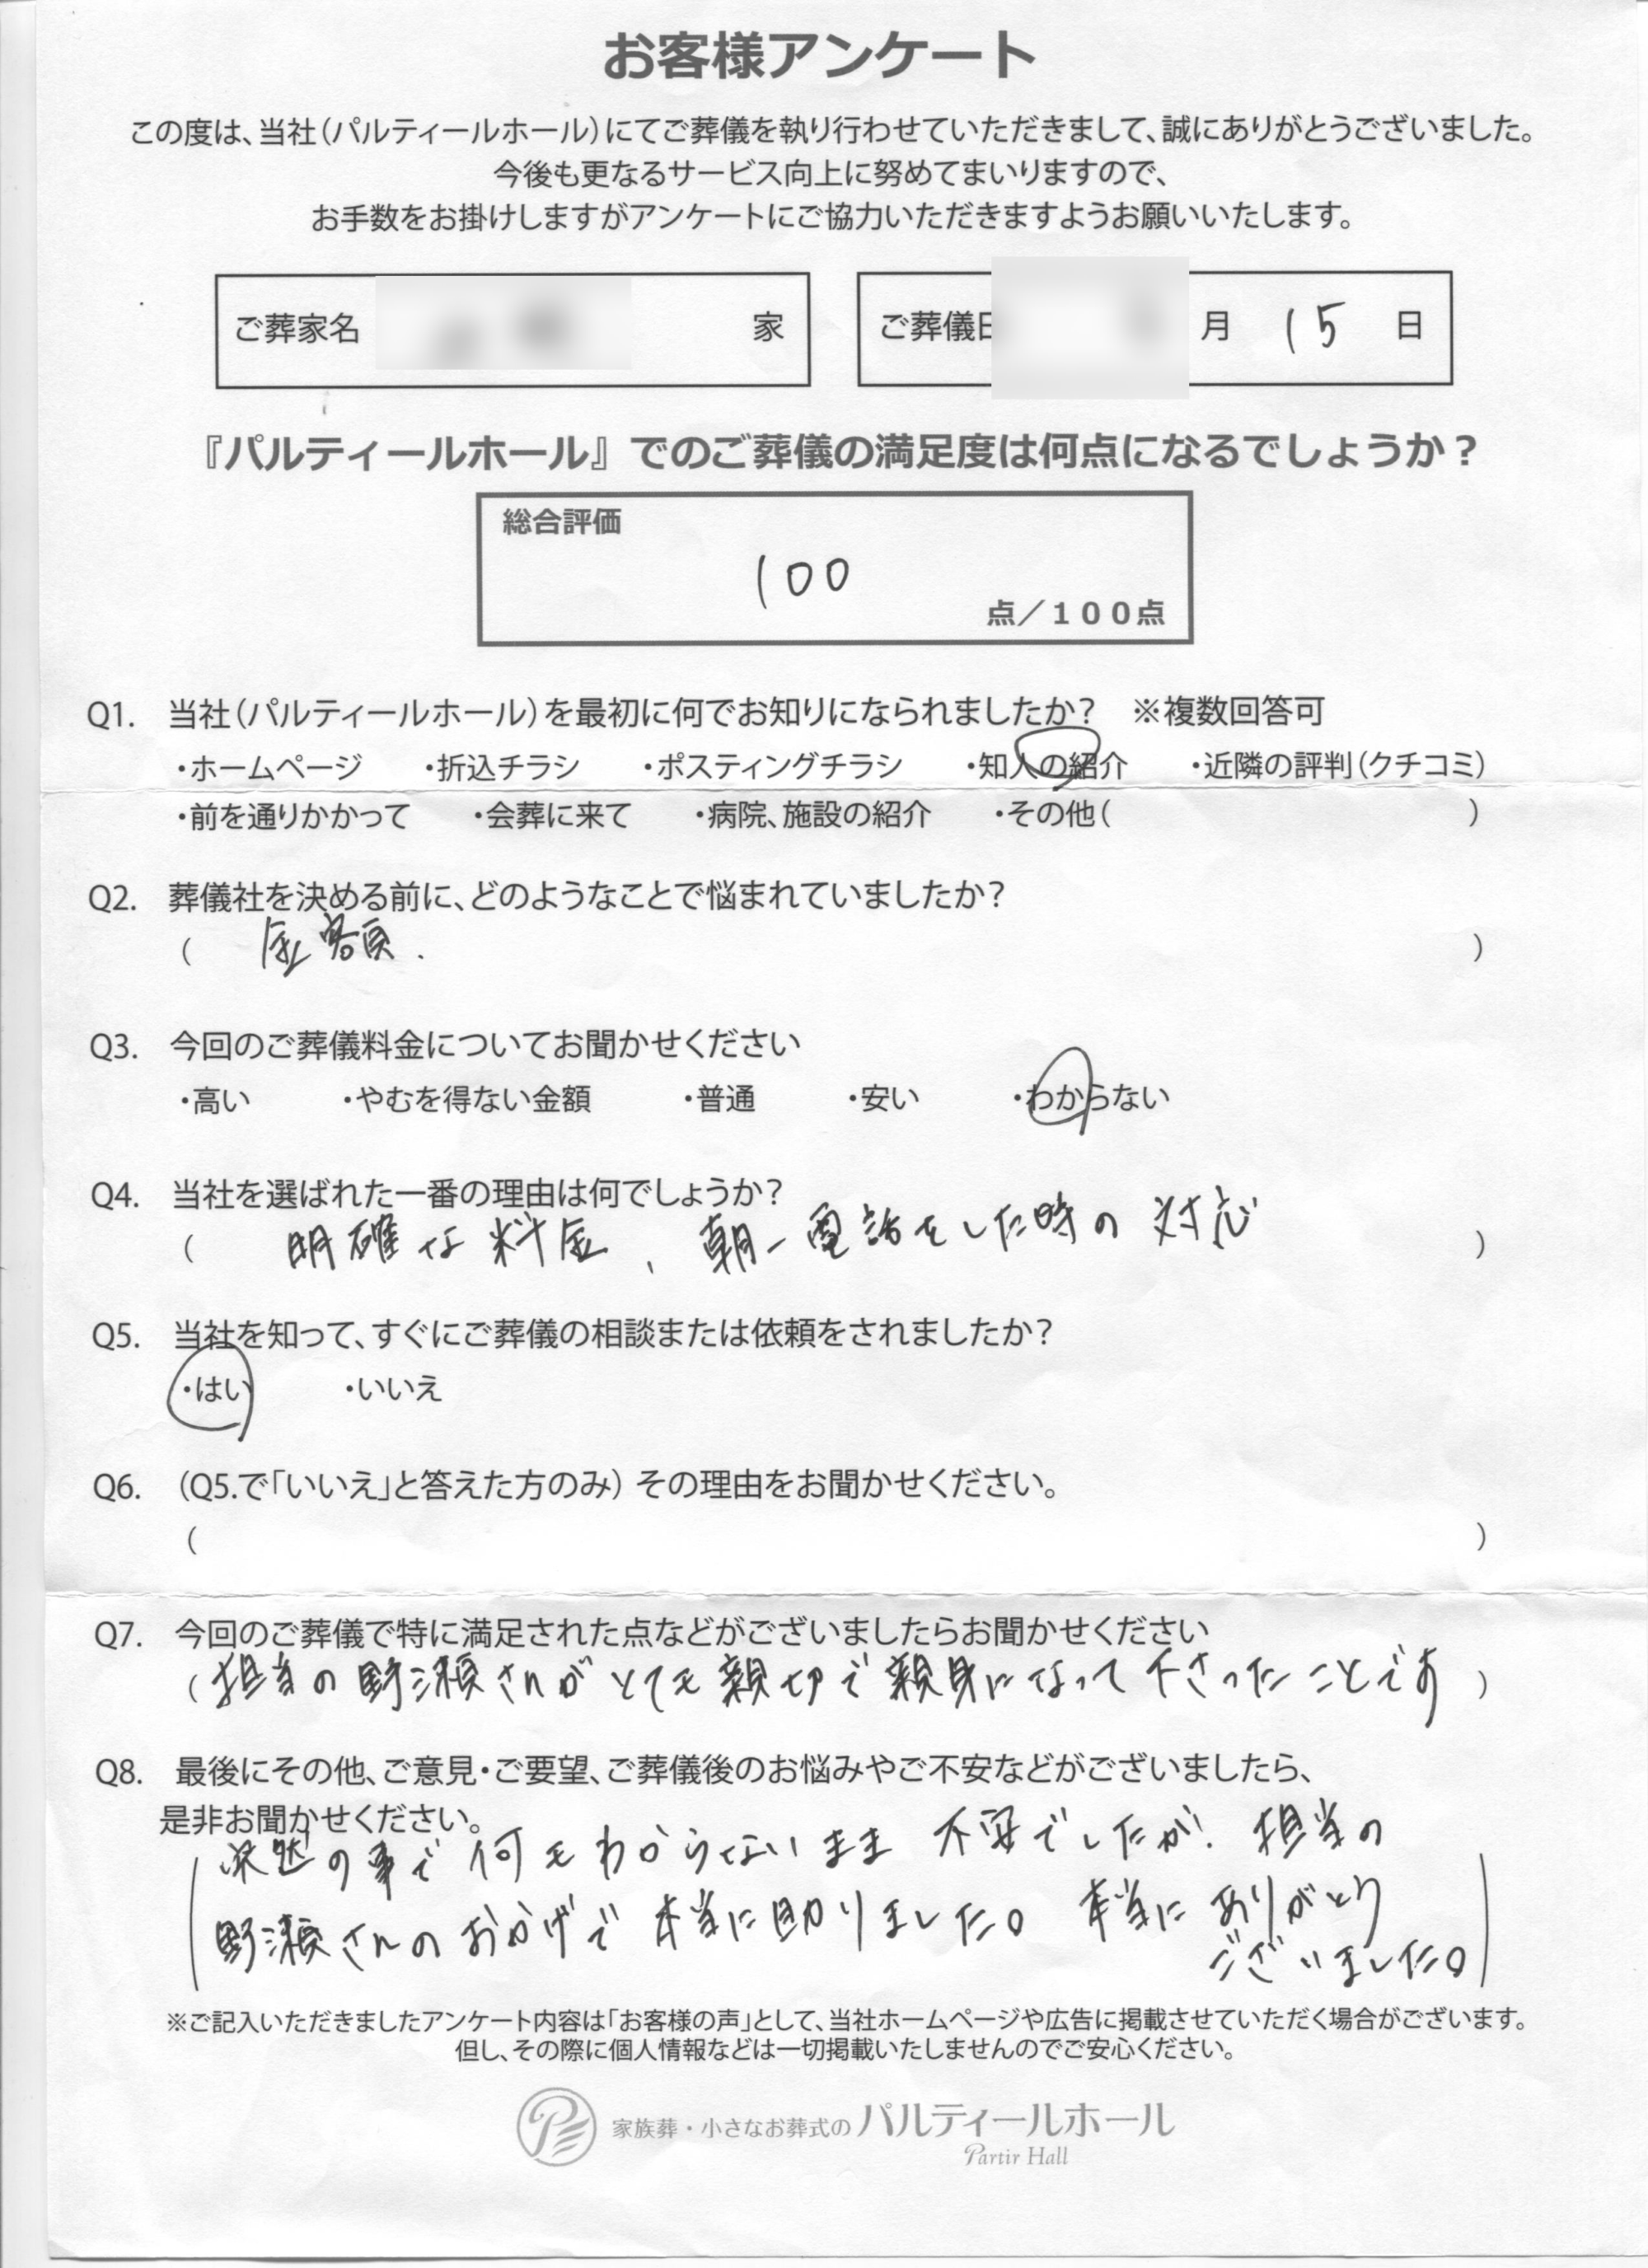 お客様アンケート
この度は、当社(パルティールホール)にてご葬儀を執り行わせていただきまして、誠にありがとうございました。
今後も更なるサービス向上に努めてまいりますので、
お手数をお掛けしますがアンケートにご協力いただきますようお願いいたします。
ご葬家名 家 ご葬儀日 月 15 日
『パルティールホール』でのご葬儀の満足度は何点になるでしょうか?
総合評価
100
点/100点
Q1. 当社(パルティールホール)を最初に何でお知りになられましたか? ※複数回答可
・ホームページ ・折込チラシ ・ポスティングチラシ ・知人の紹介 ・近隣の評判(クチコミ)
・前を通りかかって ・会葬に来て ・病院、施設の紹介 ・その他( )
Q2. 葬儀社を決める前に、どのようなことで悩まれていましたか?
( 金額. )
Q3. 今回のご葬儀料金についてお聞かせください
・高い ・やむを得ない金額 ・普通 ・安い ・わからない
Q4. 当社を選ばれた一番の理由は何でしょうか?
( 明確な料金、朝一電話をした時の対応 )
Q5. 当社を知って、すぐにご葬儀の相談または依頼をされましたか?
・はい ・いいえ
Q6. (Q5.で「いいえ」と答えた方のみ) その理由をお聞かせください。
( )
Q7. 今回のご葬儀で特に満足された点などがございましたらお聞かせください
( 担当の野瀬さんがとても親切で親身になって下さったことです )
Q8. 最後にその他、ご意見・ご要望、ご葬儀後のお悩みやご不安などがございましたら、
是非お聞かせください。
( 突然の事で何もわからないまま不安でしたが、担当の
野瀬さんのおかげで本当に助かりました。本当にありがとう
ございました。)
※ご記入いただきましたアンケート内容は「お客様の声」として、当社ホームページや広告に掲載させていただく場合がございます。
但し、その際に個人情報などは一切掲載いたしませんのでご安心ください。
家族葬・小さなお葬式の パルティールホール
Partir Hall